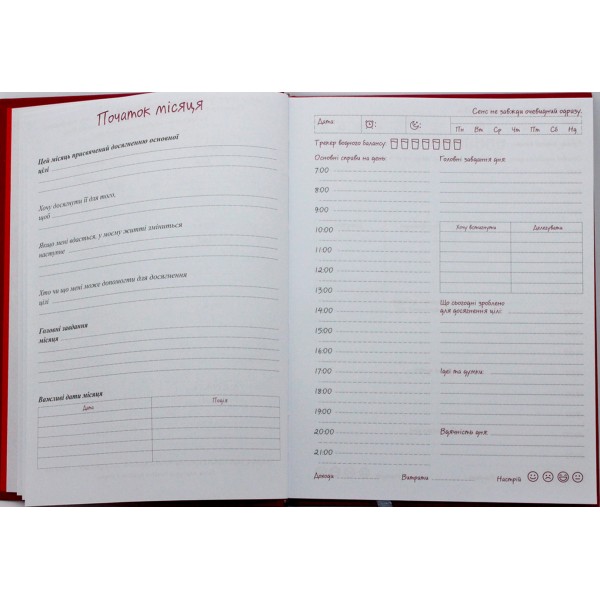 Початок місяця
Цей місяць присвячений досягненню основної
цілі
Хочу досягнути її для того,
щоб
Якщо мені вдасться, у моєму житті зміниться
наступне
Хто чи що мені може допомогти для досягнення
цілі
Головні завдання
місяця
Важливі дати місяця
Дата Подія
Сенс не завжди очевидний одразу.
Дата:
Пн Вт Ср Чт Пт Сб Нд
Трекер водного балансу:
Основні справи на день:
7:00
8:00
9:00
10:00
11:00
12:00
13:00
14:00
15:00
16:00
17:00
18:00
19:00
20:00
21:00
Головні завдання дня:
Хочу встигнути Делегувати
Що сьогодні зроблено
для досягнення цілі:
Ідеї та думки:
Вдячність дня:
Доходи Витрати Настрій